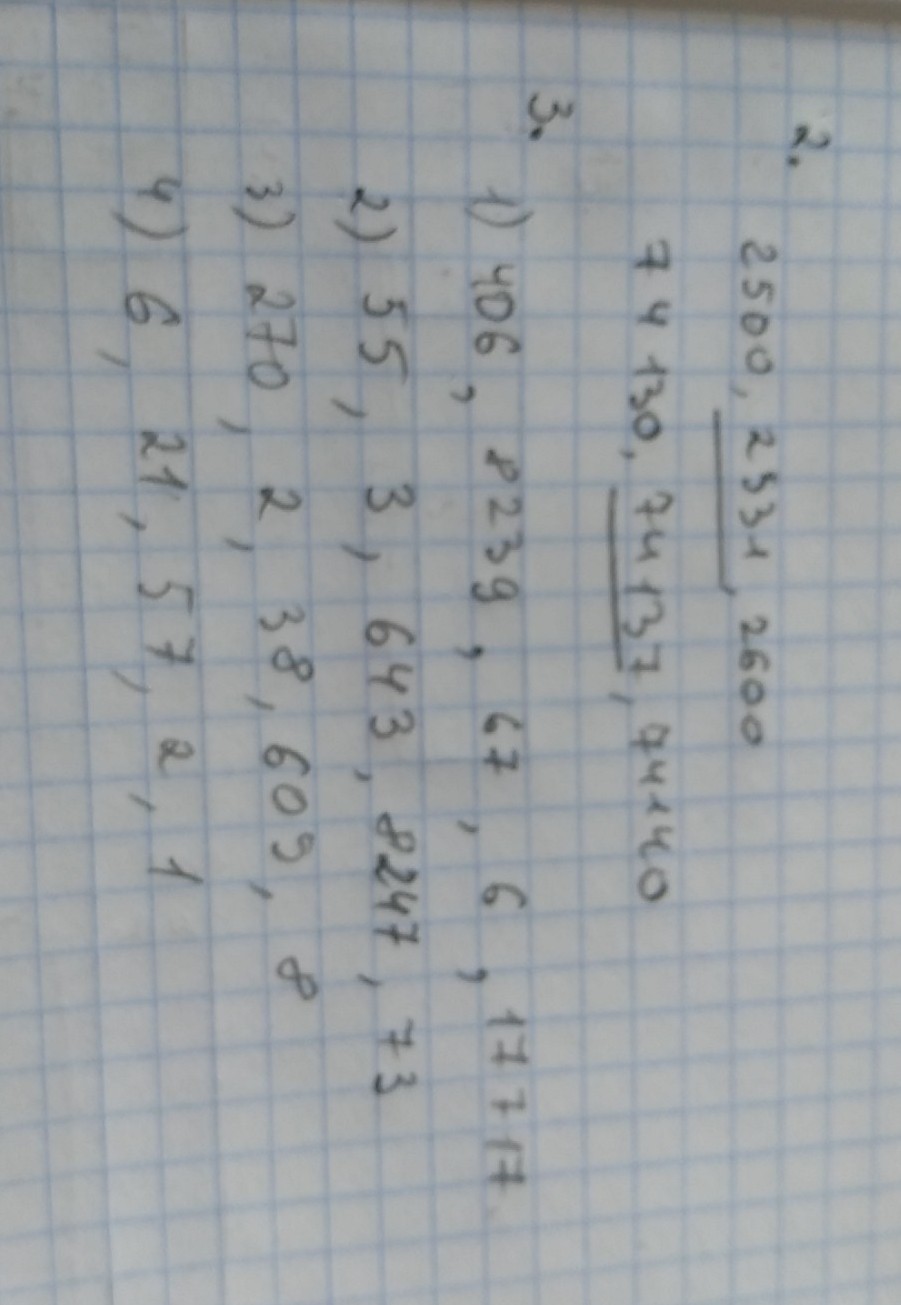 2. 2500, 2531, 2600
74130, 74137, 74140
3. 1) 406, 8239, 67, 6, 17717
2) 55, 3, 643, 8247, 73
3) 270, 2, 38, 609, 8
4) 6, 21, 57, 2, 1